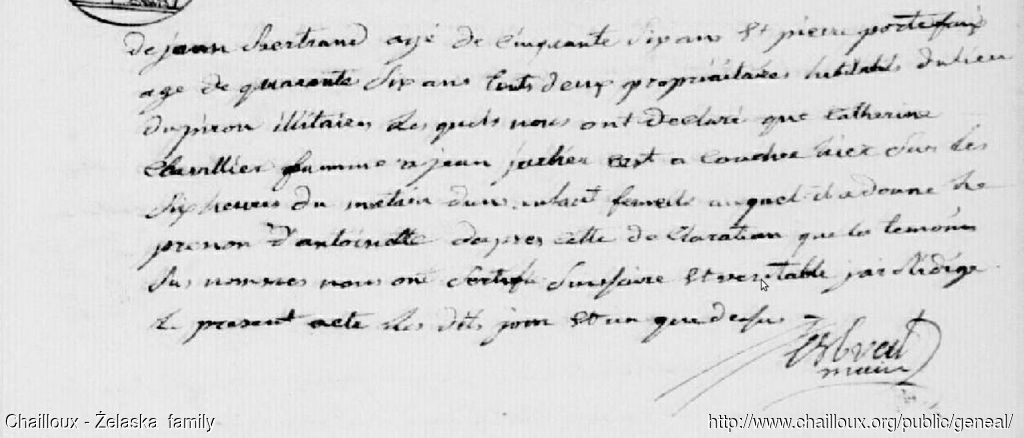 de jean Bertrand agé de cinquante six ans Et pierre portefaix
age de quarante six ans touts deux propriaitaires habitants du lieu
du piron illitaires les quels nous ont declaré que catherine
Chevillier famme a jean est a Couchee hier sur les
six heures du matien duns enfant femelle auquel il a donne le
prenom d'antoinette daspres cette de Claration que les temoins
sus nommes nous ont Sertifie Sinssaire Et veritable jai Redige
Le present acte les dits jour Et an que desus
maire
Chailloux - Želaska family
http://www.chailloux.org/public/geneal/